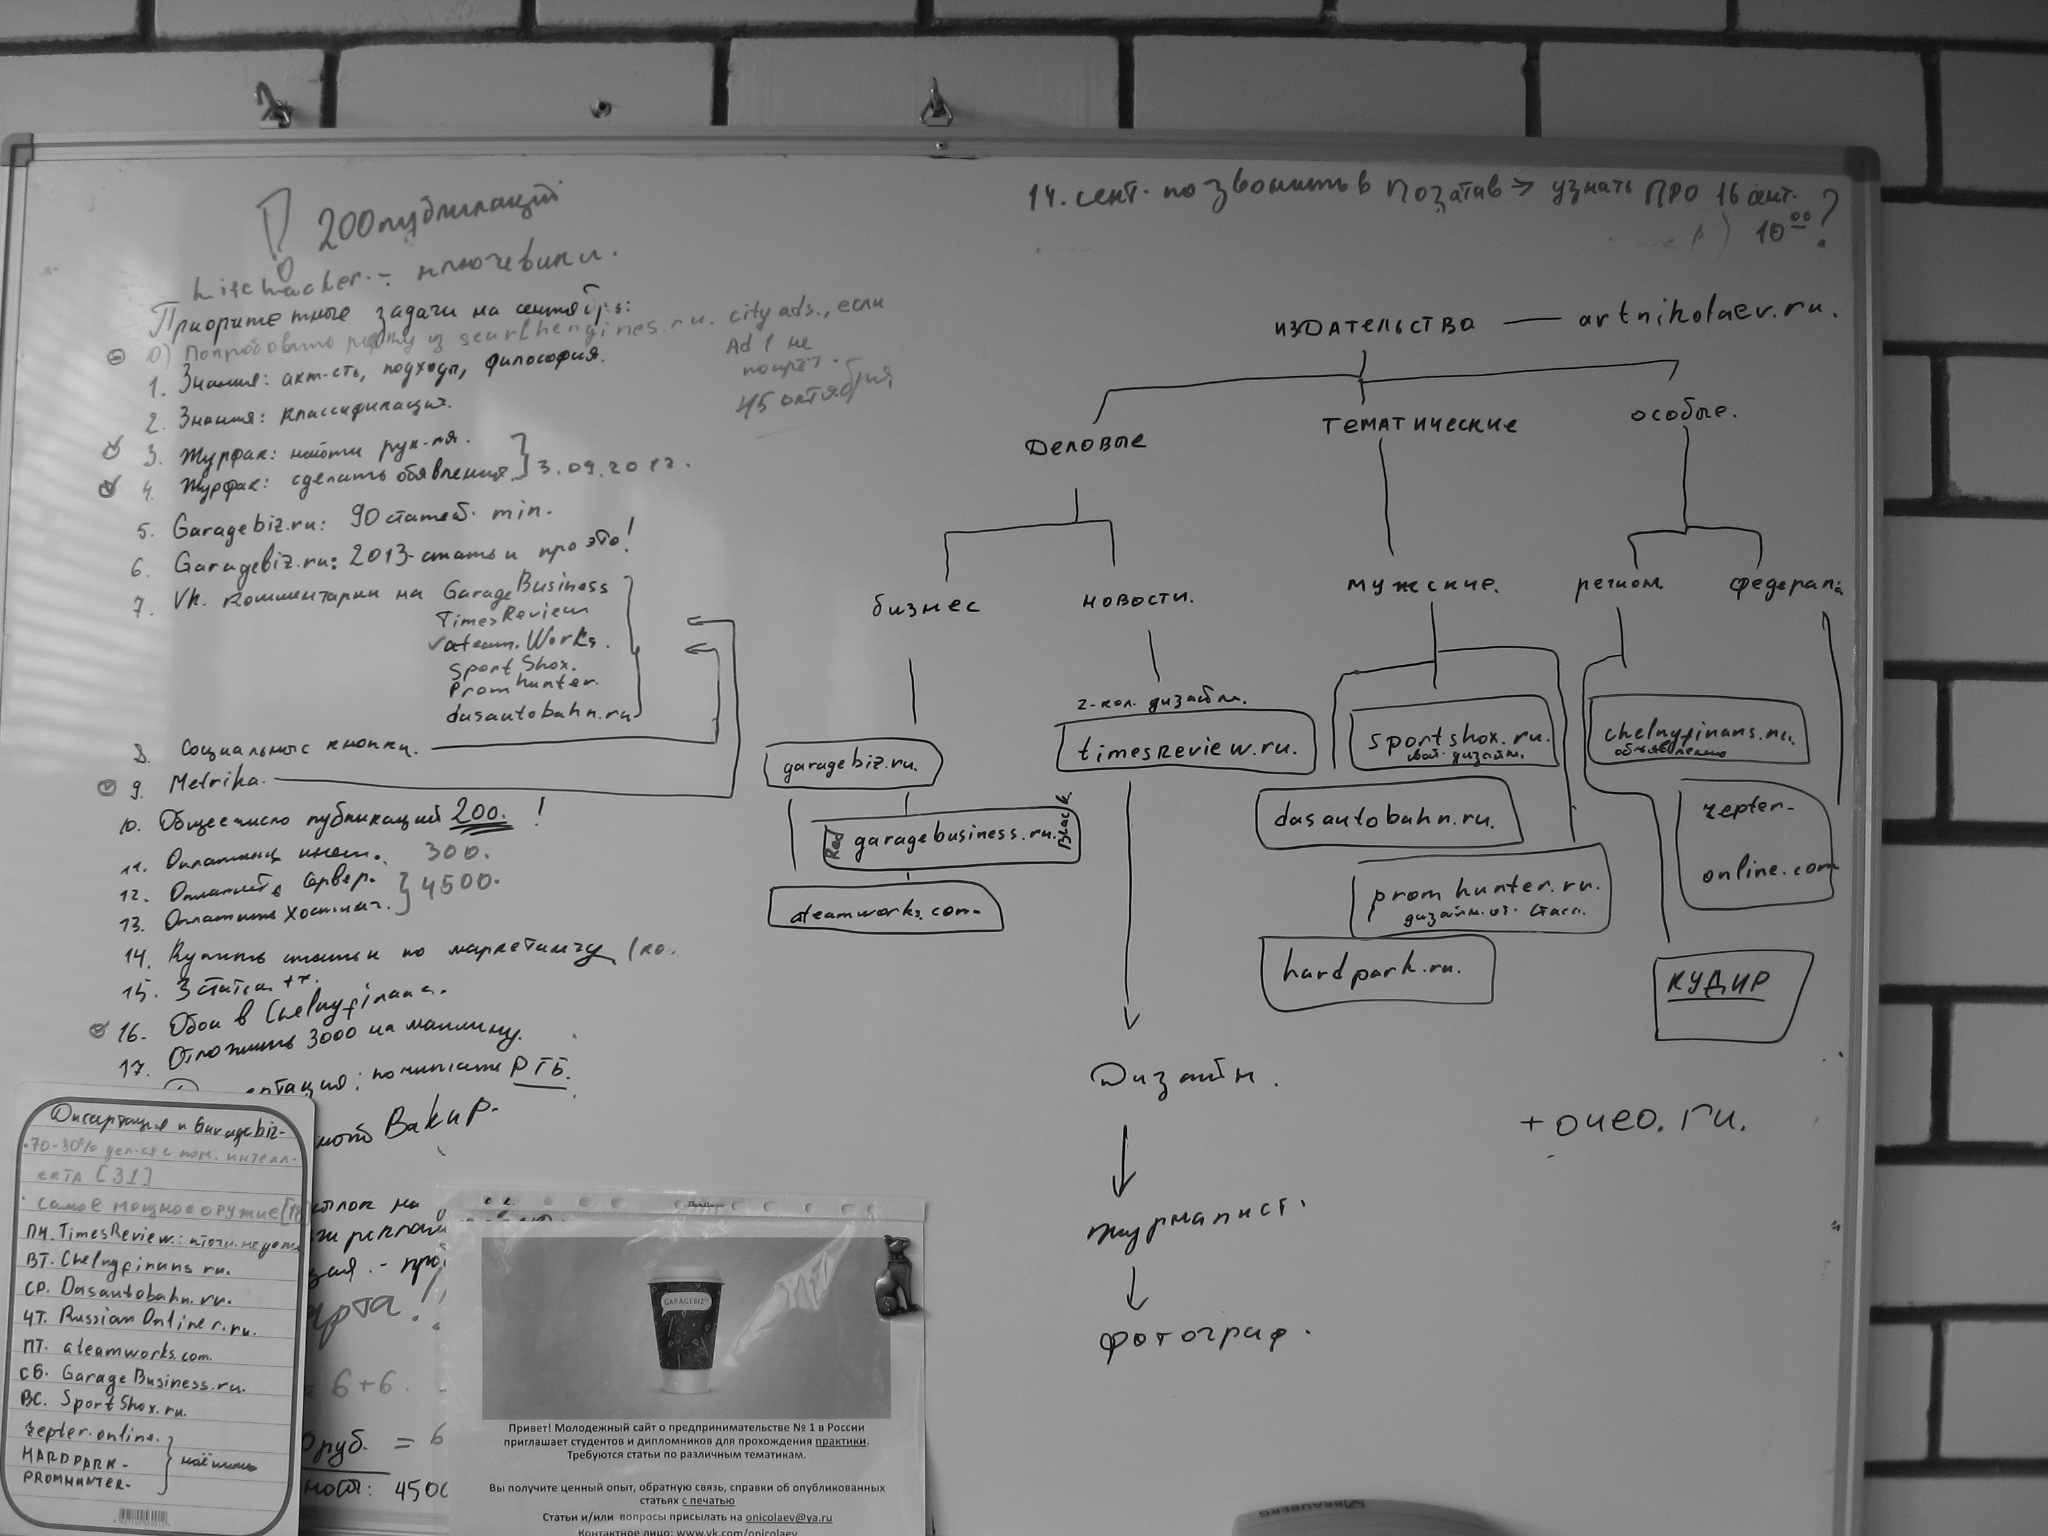 200 публикаций
Lifehacker - ключевики.
Приоритетные задачи на сентябрь:
0) Попробовать из searchengines.ru. city ads., если
Ad 1 не
45 октября
1. Знания: акт-сть, подходы, философия.
2. Знания: классификация.
3. Журфак: найти рук-ля.
4. Журфак: сделать обявления. } 3.09.2012.
5. Garagebiz.ru: 90 статей. min.
6. Garagebiz.ru: 2013-статьи про это!
7. Vk. комментарии на GarageBusiness
TimesReview
ateam.Works.
SportShox.
Promhunter.
dasautobahn.ru
8. Социальные кнопки.
9. Metrika.
10. Общее число публикаций 200. !
11. инет. 300.
12. Оплатить сервер.
13. Оплатить хостинг. } 4500.
14. Купить статьи по маркетингу
15. 3 статьи
16. Обои в Chelnyfinans.
17. Отложить 3000 на машину.
почитать РГБ.
Вакир.
на
6+6.
руб. = 6
4500
Дисертация и Garagebiz-
70-80% с интелл-
екта [31]
самое мощное оружие
ПН. TimesReview.:
ВТ. Chelnyfinans ru.
СР. Dasautobahn.ru.
ЧТ. RussianOnliner.ru.
ПТ. ateamworks.com.
СБ. GarageBusiness.ru.
ВС. SportShox.ru.
zepter-online.
HARDPARK-
PROMHUNTER-
GARAGEBIZ
Привет! Молодежный сайт о предпринимательстве № 1 в России
приглашает студентов и дипломников для прохождения практики.
Требуются статьи по различным тематикам.
Вы получите ценный опыт, обратную связь, справки об опубликованных
статьях с печатью
Статьи и/или вопросы присылать на onicolaev@ya.ru
Контактное лицо: www.vk.com/onicolaev
14. сент. позвонить в Позатив → узнать ПРО 16 сент.
10⁰⁰?
издательства — artnikolaev.ru.
Деловые
тематические
особые.
бизнес
новости.
мужские.
регион.
федерал.
2-кол. дизайн.
garagebiz.ru.
timesReview.ru.
sportshox.ru.
свой дизайн.
chelnyfinans.ru.
обновлено
Red garagebusiness.ru. Black
dasautobahn.ru.
zepter-
online.com
ateamworks.com-
promhunter.ru.
дизайн от Стаса.
hardpark.ru.
КУДИР
Дизайн.
Журналист.
фотограф.
+ очео.ru.
BRAUBERG